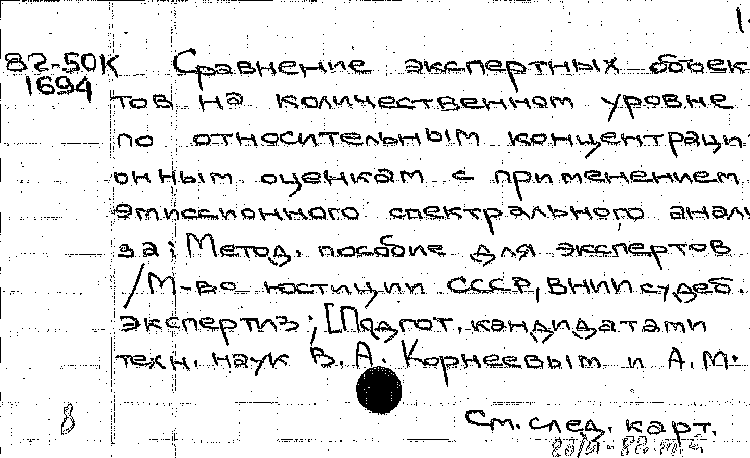 1.
82-50К Сравнение экспертных объек
1694
тов на количественном уровне
по относительным концентраци
онным оценкам с применением
эмиссионного спектрального анали
за: Метод. пособие для экспертов
/М-во юстиции СССР, ВНИИ судеб.
экспертиз; [Подгот. кандидатами
техн. наук В. А. Корнеевым и А.М.
8
См. след. карт.